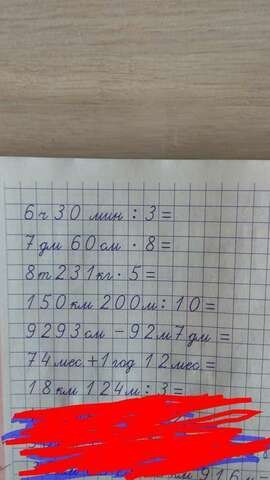 6 ч 30 мин : 3 =
7 дм 60 см · 8 =
8 т 231 кг · 5 =
150 км 200 м : 10 =
9293 см - 92 м 7 дм =
74 мес. + 1 год 12 мес. =
18 км 124 м : 3 =